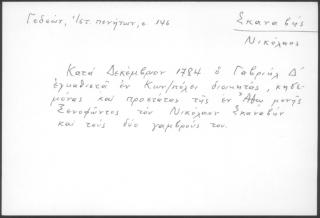 Γεδεών, Ἱστ. πενήτων, σ. 146
Σκαναβής
Νικόλαος
Κατά Δεκέμβριον 1784 ὁ Γαβριήλ Δ΄
ἐγκαθιστᾶ ἐν Κων/πόλει διοικητάς, κηδε-
μόνας καί προστάτας τῆς ἐν Ἄθῳ μονῆς
Ξενοφῶντος τόν Νικόλαον Σκαναβήν
καί τούς δύο γαμβρούς του.